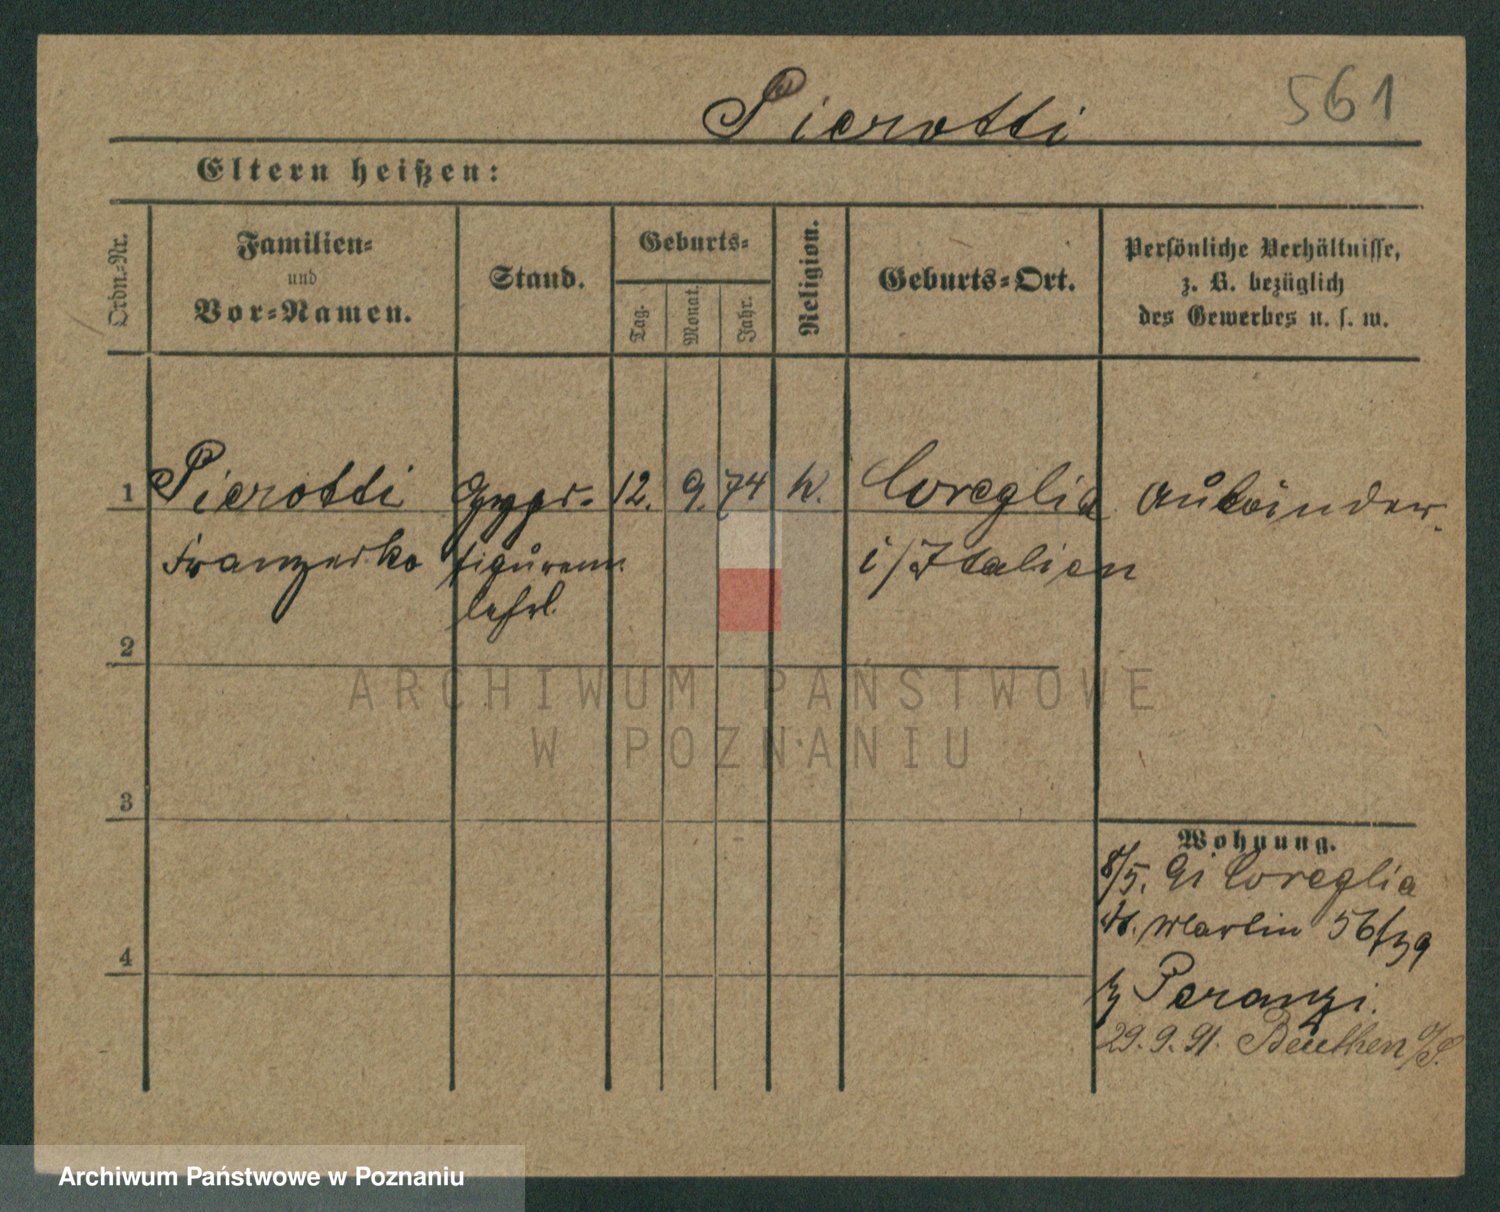 Pierotti
561
Eltern heißen:
Ordn.-Nr.
Familien-
und
Vor-Namen.
Stand.
Geburts-
Tag.
Monat.
Jahr.
Religion.
Geburts-Ort.
Persönliche Verhältnisse,
z. B. bezüglich
des Gewerbes u. s. w.
1 Pierotti Gyps- 12. 9. 74 k. Coreglia
Franzesko figuren
lehrl.
i/Italien
2
3
4
Wohnung.
8/5. 91 Coreglia
St. Martin 56/59
29. 9. 91. Beuthen O/S.
ARCHIWUM PAŃSTWOWE
W POZNANIU
Archiwum Państwowe w Poznaniu